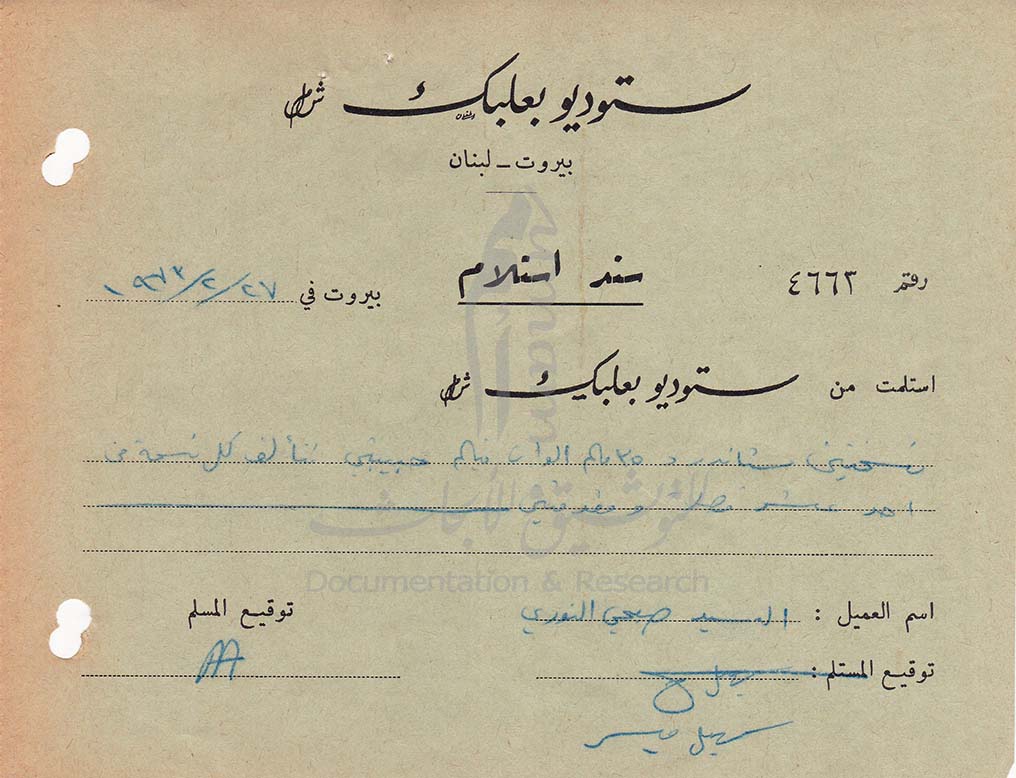 ستوديو بعلبك ش م ل
بيروت ـ لبنان
رقم ٤٦٦٣
سند استلام
بيروت في ١٩٧٣/٢/٢٧
استلمت من ستوديو بعلبك ش م ل
نسختين ستاندرد ٣٥ ملم الوان فيلم حبيبتي تتألف كل نسخة من
احد عشر فصل و مقدمتين
للتوثيق والأبحاث
Documentation & Research
اسم العميل : السيد صبحي النوري
توقيع المسلم
توقيع المستلم :
سهيل